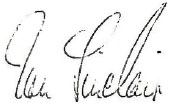 Ian Sinclair